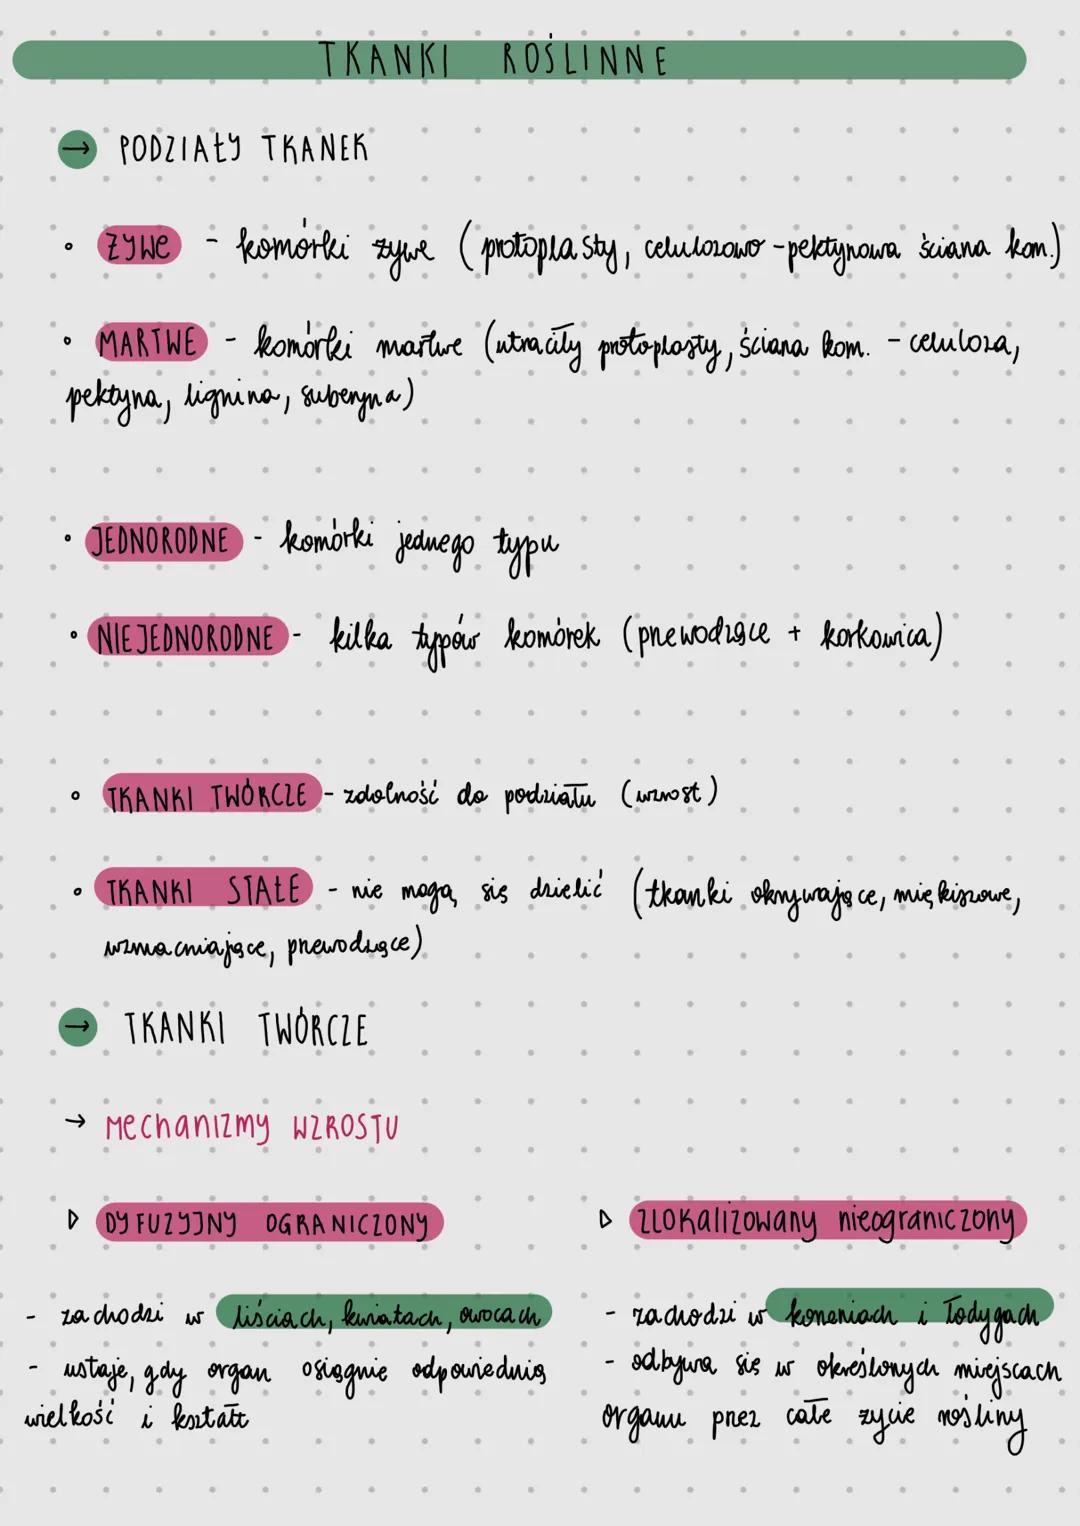 TKANKI ROŚLINNE
→ PODZIAŁY TKANEK
• ŻYWE - komórki żywe (protoplasty, celulozowo-pektynowa ściana kom.)
• MARTWE - komórki martwe (utraciły protoplasty, ściana kom. - celuloza,
pektyna, lignina, suberyna)
• JEDNORODNE - komórki jednego typu
• NIEJEDNORODNE - kilka typów komórek (przewodzące + korkowica)
• TKANKI TWÓRCZE - zdolność do podziału (wzrost)
• TKANKI STAŁE - nie mogą się dzielić (tkanki okrywające, miękiszowe,
wzmacniające, przewodzące)
→ TKANKI TWÓRCZE
→ MECHANIZMY WZROSTU
▷ DYFUZYJNY OGRANICZONY
- zachodzi w liściach, kwiatach, owocach
- ustaje, gdy organ osiągnie odpowiednią
wielkość i kształt
▷ ZLOKALIZOWANY NIEOGRANICZONY
- zachodzi w korzeniach i łodygach
- odbywa się w określonych miejscach
organu przez całe życie rośliny